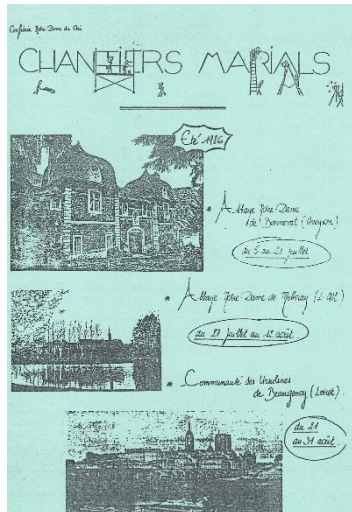 Confrérie Notre-Dame du
CHANTIERS MARIALS
Eté 1986
* Abbaye Notre-Dame
de Bonneval (Aveyron)
du 5 au juillet
* Abbaye Notre-Dame de (L. et C)
du 27 juillet au 12 août
* Communauté des Ursulines
de Beaugency (Loiret).
du 21
au 31 août.